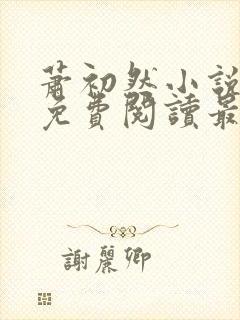 蕭初然小說
免費閱讀最
謝麗卿